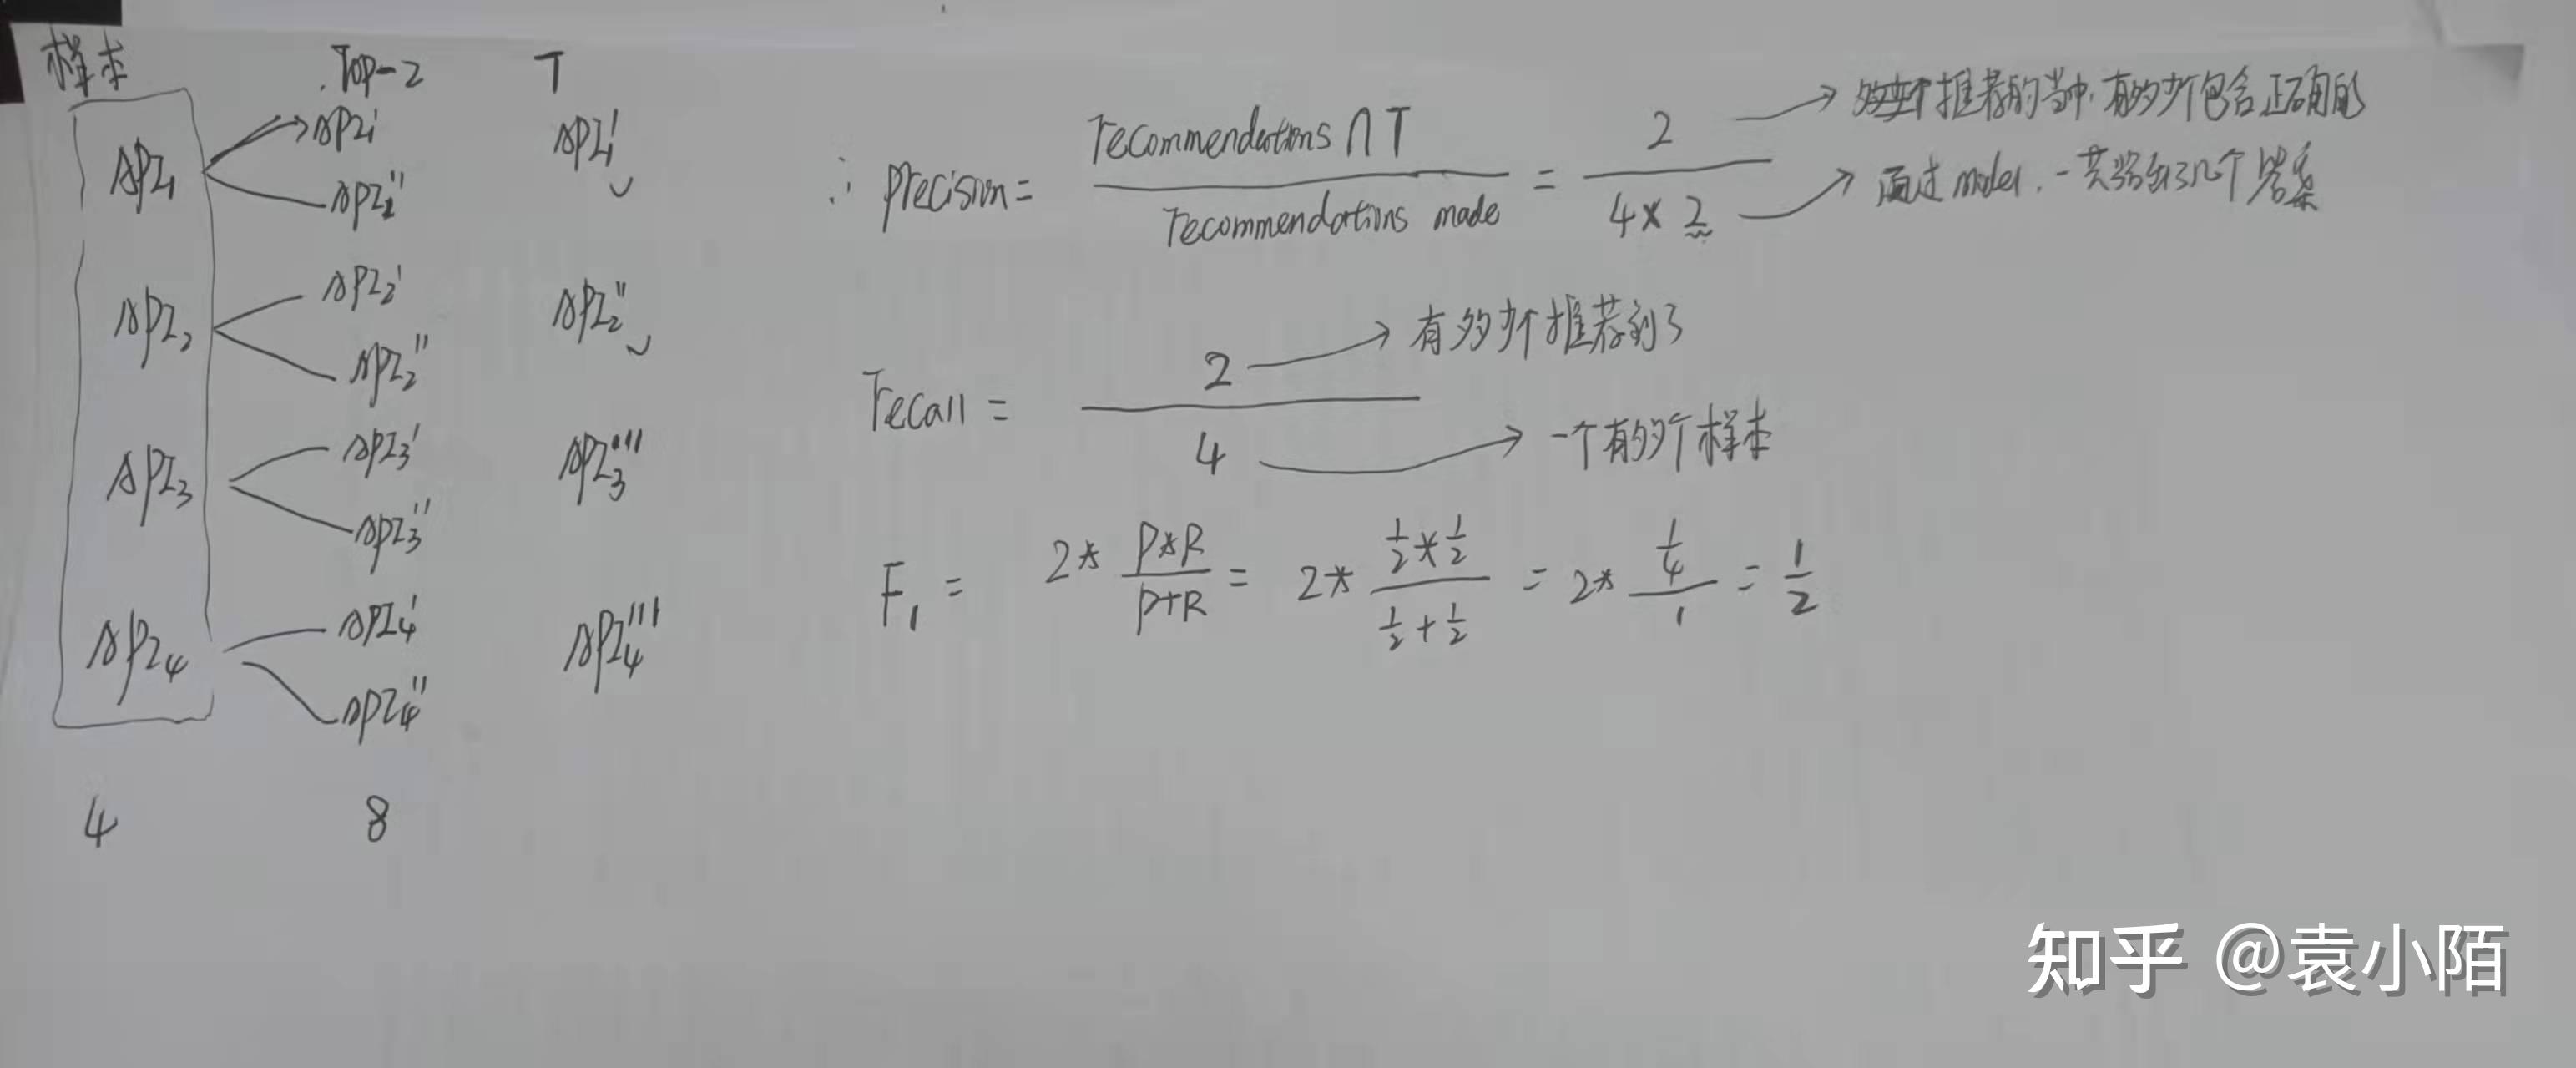 样本 Top-2 T
API₁ API₁' API₁'
API₁''
API₂ API₂' API₂''
API₂''
API₃ API₃' API₃'''
API₃''
API₄ API₄' API₄'''
API₄''
4 8
∴ precision = recommendations ∩ T / recommendations made = 2 / 4 × 2
推荐的当中,有多少个包含正确的
通过 model,一共得到了几个答案
recall = 2 / 4
有多少个推荐到了
一个有多少个样本
F₁ = 2 * P*R / P+R = 2 * ½*½ / ½+½ = 2 * ¼ / 1 = ½
知乎 @袁小陌